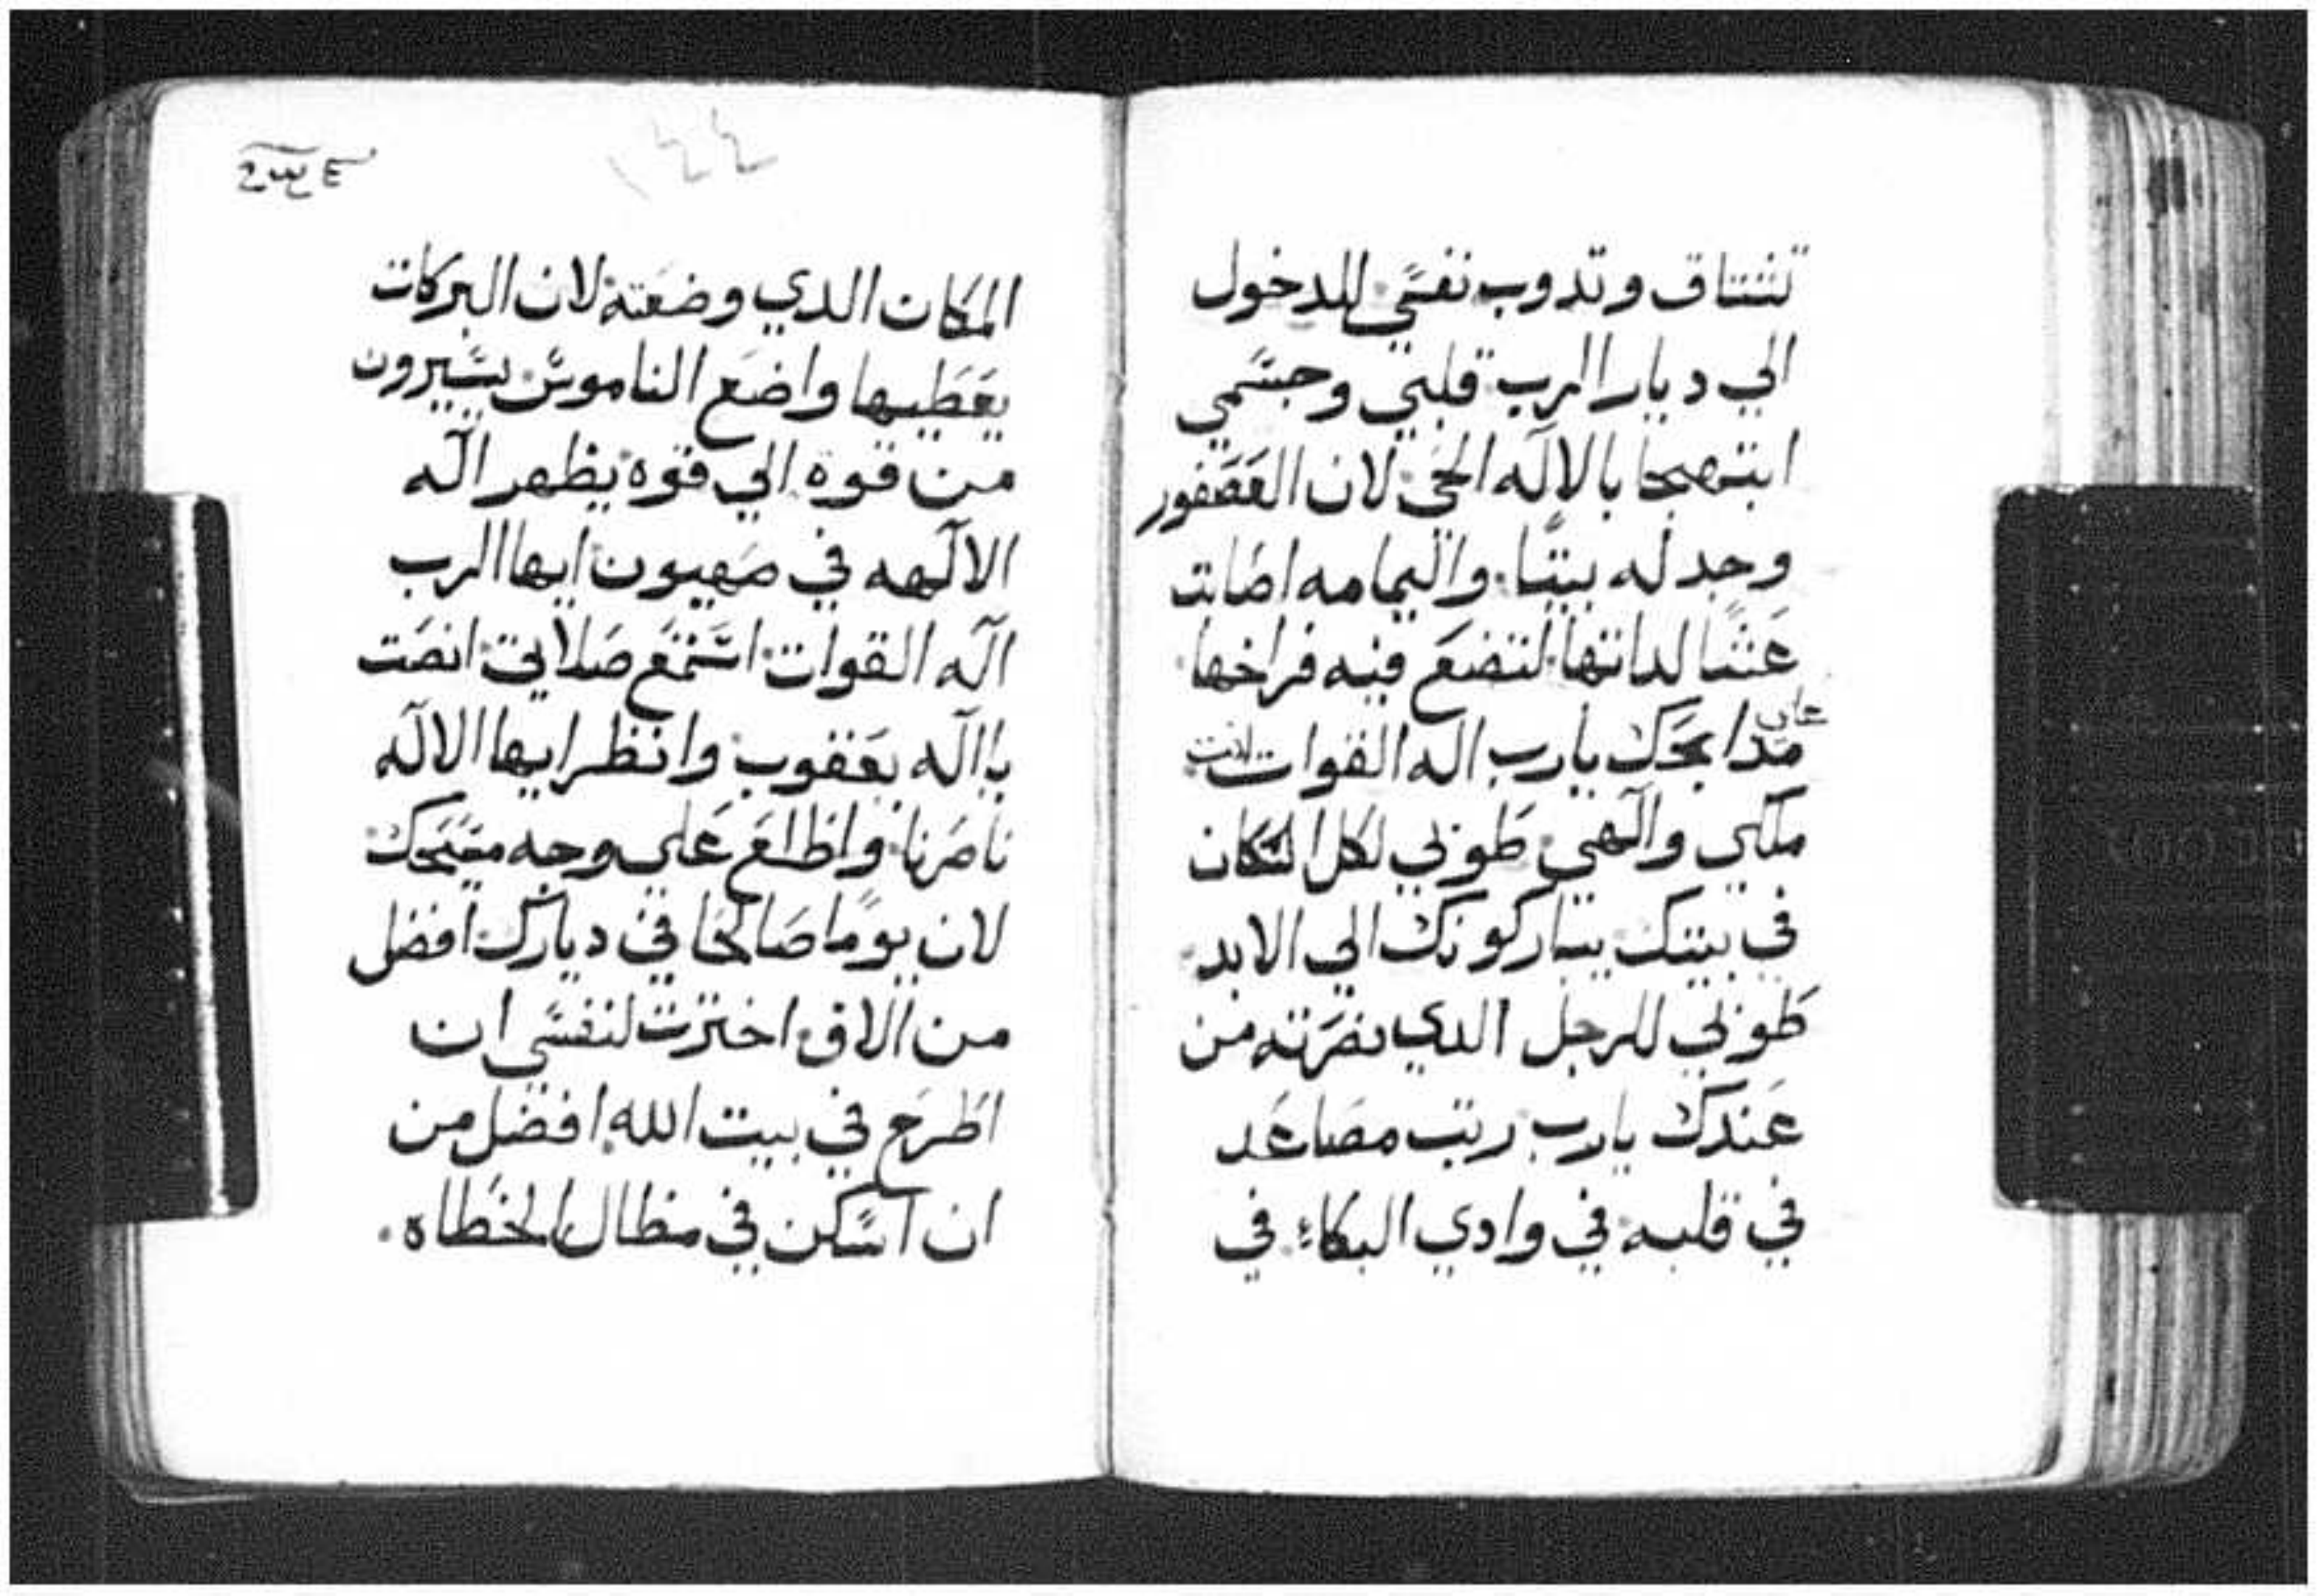 تشتاق وتدوب نفسي للدخول
الي ديار الرب قلبي وجسمي
ابتهجا بالاله الحي لان العصفور
وجد له بيتا واليمامه اصابت
عشا لداتها لتضع فيه فراخها
علي
مدابحك يارب اله القوات لانت
ملكي والهي طوبي لكل السكان
في بيتك يباركونك الي الابد
طوبي للرجل الدي نصرته من
عندك يارب رتب مصاعد
في قلبه في وادي البكاء في
١٤٤
المكان الدي وضعته لان البركات
يعطيها واضع الناموس يسيرون
من قوة الي قوه يظهر اله
الالهه في صهيون ايها الرب
اله القوات استمع صلاتي انصت
يااله يعقوب وانظر ايها الاله
ناصرنا واطلع علي وجه مسيحك
لان يوما صالحا في ديارك افضل
من الاف اخترت لنفسي ان
اطرح في بيت الله افضل من
ان اسكن في مظال الخطاه